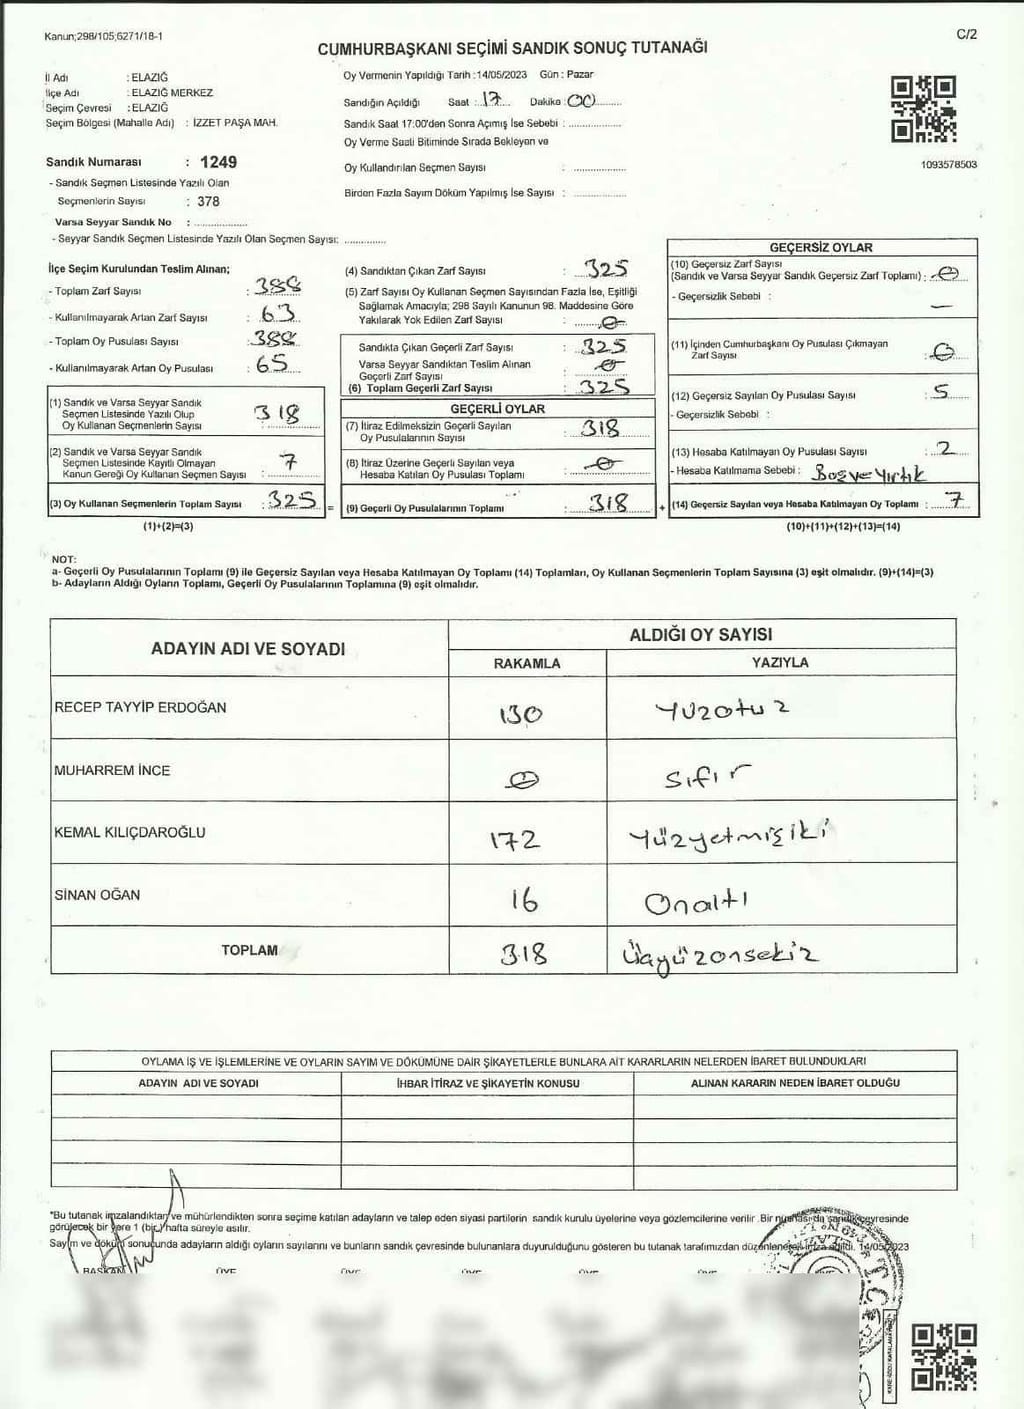 Kanun;298/105;6271/18-1
C/2
CUMHURBAŞKANI SEÇİMİ SANDIK SONUÇ TUTANAĞI
İl Adı : ELAZIĞ
İlçe Adı : ELAZIĞ MERKEZ
Seçim Çevresi : ELAZIĞ
Seçim Bölgesi (Mahalle Adı) : İZZET PAŞA MAH.
Sandık Numarası : 1249
- Sandık Seçmen Listesinde Yazılı Olan
Seçmenlerin Sayısı : 378
Varsa Seyyar Sandık No : ....................
- Seyyar Sandık Seçmen Listesinde Yazılı Olan Seçmen Sayısı: ...............
Oy Vermenin Yapıldığı Tarih :14/05/2023 Gün : Pazar
Sandığın Açıldığı Saat : 17 Dakika : 00
Sandık Saat 17:00'den Sonra Açımış İse Sebebi : ...................
Oy Verme Saati Bitiminde Sırada Bekleyen ve
Oy Kullandırılan Seçmen Sayısı : ...................
Birden Fazla Sayım Döküm Yapılmış İse Sayısı : ...................
1093578503
İlçe Seçim Kurulundan Teslim Alınan;
- Toplam Zarf Sayısı : 388
- Kullanılmayarak Artan Zarf Sayısı : 63
- Toplam Oy Pusulası Sayısı : 388
- Kullanılmayarak Artan Oy Pusulası : 65
(1) Sandık ve Varsa Seyyar Sandık
Seçmen Listesinde Yazılı Olup
Oy Kullanan Seçmenlerin Sayısı : 318
(2) Sandık ve Varsa Seyyar Sandık
Seçmen Listesinde Kayıtlı Olmayan
Kanun Gereği Oy Kullanan Seçmen Sayısı : 7
(3) Oy Kullanan Seçmenlerin Toplam Sayısı : 325 =
(1)+(2)=(3)
(4) Sandıktan Çıkan Zarf Sayısı : 325
(5) Zarf Sayısı Oy Kullanan Seçmen Sayısından Fazla İse, Eşitliği
Sağlamak Amacıyla; 298 Sayılı Kanunun 98. Maddesine Göre
Yakılarak Yok Edilen Zarf Sayısı : 0
Sandıkta Çıkan Geçerli Zarf Sayısı : 325
Varsa Seyyar Sandıktan Teslim Alınan
Geçerli Zarf Sayısı : 0
(6) Toplam Geçerli Zarf Sayısı : 325
GEÇERLİ OYLAR
(7) İtiraz Edilmeksizin Geçerli Sayılan
Oy Pusulalarının Sayısı : 318
(8) İtiraz Üzerine Geçerli Sayılan veya
Hesaba Katılan Oy Pusulası Toplamı : 0
(9) Geçerli Oy Pusulalarının Toplamı : 318 +
GEÇERSİZ OYLAR
(10) Geçersiz Zarf Sayısı
(Sandık ve Varsa Seyyar Sandık Geçersiz Zarf Toplamı) : 0
- Geçersizlik Sebebi : —
(11) İçinden Cumhurbaşkanı Oy Pusulası Çıkmayan
Zarf Sayısı : 0
(12) Geçersiz Sayılan Oy Pusulası Sayısı : 5
- Geçersizlik Sebebi :
(13) Hesaba Katılmayan Oy Pusulası Sayısı : 2
- Hesaba Katılmama Sebebi : Boş ve Yırtık
(14) Geçersiz Sayılan veya Hesaba Katılmayan Oy Toplamı : 7
(10)+(11)+(12)+(13)=(14)
NOT:
a- Geçerli Oy Pusulalarının Toplamı (9) ile Geçersiz Sayılan veya Hesaba Katılmayan Oy Toplamı (14) Toplamları, Oy Kullanan Seçmenlerin Toplam Sayısına (3) eşit olmalıdır. (9)+(14)=(3)
b- Adayların Aldığı Oyların Toplamı, Geçerli Oy Pusulalarının Toplamına (9) eşit olmalıdır.
ADAYIN ADI VE SOYADI
ALDIĞI OY SAYISI
RAKAMLA YAZIYLA
RECEP TAYYİP ERDOĞAN 130 Yüzotuz
MUHARREM İNCE 0 sıfır
KEMAL KILIÇDAROĞLU 172 Yüzyetmişiki
SİNAN OĞAN 16 Onaltı
TOPLAM 318 Üçyüzonsekiz
OYLAMA İŞ VE İŞLEMLERİNE VE OYLARIN SAYIM VE DÖKÜMÜNE DAİR ŞİKAYETLERLE BUNLARA AİT KARARLARIN NELERDEN İBARET BULUNDUKLARI
ADAYIN ADI VE SOYADI İHBAR İTİRAZ VE ŞİKAYETİN KONUSU ALINAN KARARIN NEDEN İBARET OLDUĞU
*Bu tutanak imzalandıktan ve mühürlendikten sonra seçime katılan adayların ve talep eden siyasi partilerin sandık kurulu üyelerine veya gözlemcilerine verilir .Bir nüshası da sandık çevresinde
görülecek bir yere 1 (bir) hafta süreyle asılır.
Sayım ve döküm sonucunda adayların aldığı oyların sayılarını ve bunların sandık çevresinde bulunanlara duyurulduğunu gösteren bu tutanak tarafımızdan düzenlenerek imza edildi. 14/05/2023
BAŞKAN ÜYE ÜYE ÜYE ÜYE ÜYE ÜYE
T.C.